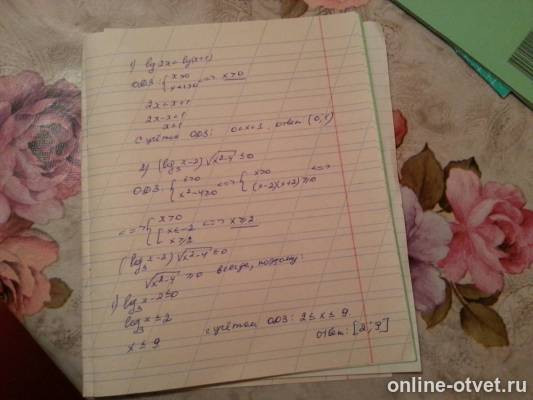 1) lg 2x < lg(x+1)
ОДЗ: { x>0 x+1>0 <=> x>0
2x < x+1
2x-x<1
x<1
С учётом ОДЗ: 0<x<1. Ответ (0;1)
2) (log₃x-2)√x²-4 ≤0
ОДЗ: { x>0 x²-4≥0 <=> { x>0 (x-2)(x+2)≥0 <=>
<=> { x>0 [ x≤-2 x≥2 <=> x≥2
(log₃x-2)√x²-4 ≤0
√x²-4 ≥0 всегда, поэтому:
1) log₃x-2≤0
log₃x≤2
x≤9
с учётом ОДЗ: 2≤x≤9.
Ответ: [2;9]
online-otvet.ru